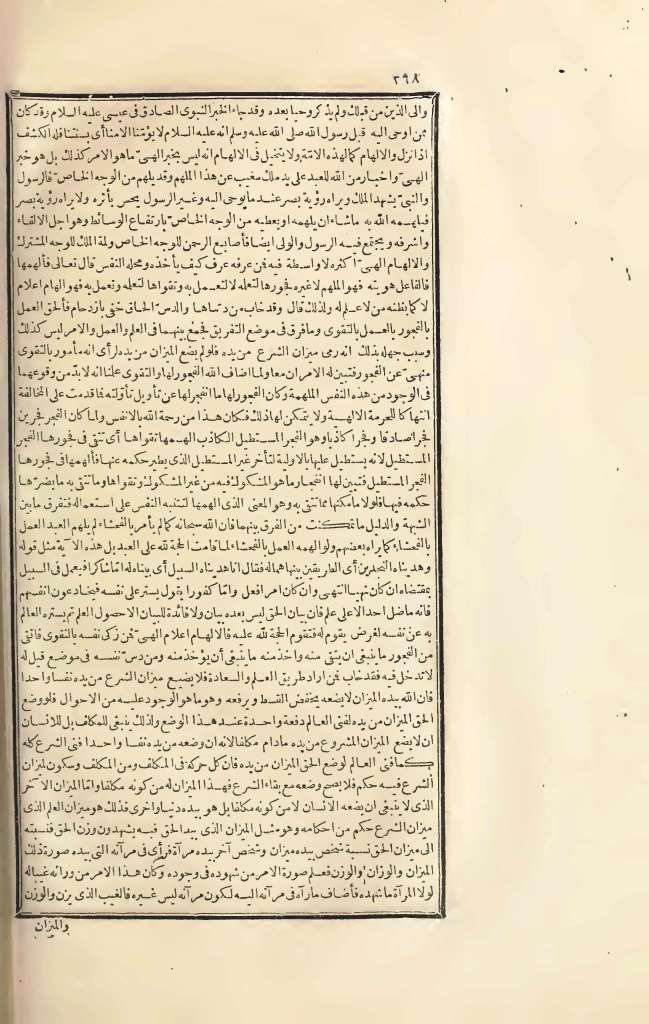 ٢٩٨
والى الذين من قبلك ولم يذكر وحيا بعده وقد جاء الخبر النبوى الصادق فى عيسى عليه السلام وقد كان
ممن اوحى اليه قبل رسول الله صلى الله عليه وسلم انه عليه السلام لا يؤمنا الا منا أى بسنتنا فله الكشف
اذا نزل والالهام كما لهذه الامة ولا يتخيل فى الالهام انه ليس بخبر الهىّ ما هو الامر كذلك بل هو خبر
الهىّ واخبار من الله للعبد على يد ملك مغيب عن هذا الملهم وقد يلهم من الوجه الخاص فالرسول
والنبىّ يشهد الملك ويراه رؤية بصر عند ما يوحى اليه وغير الرسول يحس بأثره ولا يراه رؤية بصر
فيلهمه الله به ما شاء ان يلهمه او يعطيه من الوجه الخاص بارتفاع الوسائط وهو اجل الالقاء
واشرفه ويجتمع فيه الرسول والولى ايضا فأصابع الرحمن للوجه الخاص ولمة الملك للوجه المشترك
والالهام الهىّ اكثره لا واسطة فيه فمن عرفه عرف كيف يأخذه ومحله النفس قال تعالى فألهمها
فالفاعل هو يته فهو الملهم لا غيره فجورها لتعلمه لا لتعمل به وتقواها لتعلمه وتعمل به فهو الهام اعلام
لا كما يظنه من لا علم له ولذلك قال وقد خاب من دساها والدس الحاق خفى بازدحام فألحق العمل
بالفجور بالعمل بالتقوى وما فرق فى موضع التفريق فجمع بينهما فى العلم والعمل والامر ليس كذلك
وسبب جهله بذلك انه رمى ميزان الشرع من يده فلو لم يضع الميزان من يده لرأى انه مأمور بالتقوى
منهىّ عن الفجور فتبين له الامران معا ولما اضاف الله الفجور لها والتقوى علمنا انه لا بدّ من وقوعهما
فى الوجود من هذه النفس الملهمة وكان الفجور لها ما انفجر لها عن تأويل تأولته فما قدمت على المخالفة
انتهاكا للحرمة الالهية ولا يتمكن لها ذلك فكان هذا من رحمة الله بالانفس ولما كان الفجر فجرين
فجرا صادقا وفجرا كاذبا وهو الفجر المستطيل الكاذب الهمها تقواها أى تتقى فى فجورها الفجر
المستطيل لانه يستطيل عليها بالاولية لتأخر غير المستطيل الذى يطير حكمه عنها فألهمها فى فجورها
الفجر المستطيل فتبين لها انفجار ما هو المشكوك فيه من غير المشكوك وتقواها وما تتقى به ما يضرّها
حكمه فيها فلولا ما مكنها مما تتقى به وهو المعنى الذى الهمها لتنبه النفس على استعماله فتفرق ما بين
الشبهة والدليل ما تمكنت من الفرق بينهما فان الله سبحانه كما لم يأمر بالفحشاء لم يلهم العبد العمل
بالفحشاء كما يراه بعضهم ولو الهمه العمل بالفحشاء لما قامت الحجة لله على العبد بل هذه الآية مثل قوله
وهديناه النجدين أى الطريقين بيناهما له فقال انا هديناه السبيل أى بيناه له اما شاكرا فيعمل فى السبيل
بمقتضاه ان كان نهيا انتهى وان كان امر افعل واما كفورا يقول يستر على نفسه فيخادعون انفسهم
فانه ما ضل احد الا على علم فان بيان الحق ليس بعده بيان ولا فائدة للبيان الا حصول العلم ثم يستره العالم
به عن نفسه لغرض يقوم له فتقوم الحجة لله عليه فالالهام اعلام الهىّ فمن زكى نفسه بالتقوى فاتقى
من الفجور ما ينبغى ان يتقى منه واخذ منه ما ينبغى أن يؤخذ منه ومن دس نفسه فى موضع قيل له
لا تدخل فيه فقد خاب فمن اراد طريق العلم والسعادة فلا يضيع ميزان الشرع من يده نفسا واحدا
فان الله بيده الميزان لا يضعه يخفض القسط ويرفعه وهو ما هو الوجود عليه من الاحوال فلو وضع
الحق الميزان من يده لفنى العالم دفعة واحدة عند هذا الوضع وكذلك ينبغى للمكلف بل للانسان
ان لا يضع الميزان المشروع من يده ما دام مكلفا لانه ان وضعه من يده نفسا واحدا فنى الشرع كله
كما فنى العالم لو وضع الحق الميزان من يده فان كل حركة فى المكلف ومن المكلف وسكون لميزان
الشرع فيه حكم فلا يصح وضعه مع بقاء الشرع فهذا الميزان له من كونه مكلفا واما الميزان الآخر
الذى لا ينبغى ان يضعه الانسان لا من كونه مكلفا بل هو بيده دنيا واخرى فذلك هو ميزان العلم الذى
ميزان الشرع حكم من احكامه وهو مثل الميزان الذى بيد الحق فيه يشهد وزن الحق فنسبته
الى ميزان الحق نسبة شخص بيده ميزان وشخص آخر بيده مرآة فرأى فى مرآته التى بيده صورة ذلك
الميزان والوزان والوزن فعلم صورة الامر من شهوده فى وجوده وكان هذا الامر من ورائه غيبا له
لولا المرآة ما شهده فأضاف ما رآه فى مرآته اليه لكون مرآته ليس غيره فالغيب الذى يزن والوزن
والميزان